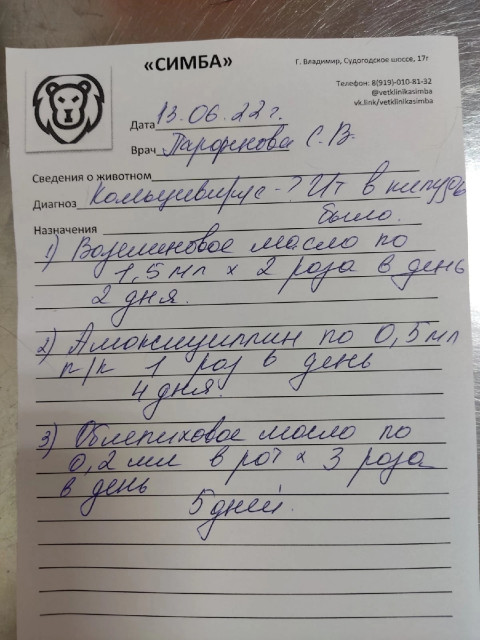 «СИМБА»
Г. Владимир, Судогодское шоссе, 17г
Телефон: 8(919)-010-81-32
@vetklinikasimba
vk.link/vetklinikasimba
Дата 13.06.22г.
Врач Парфенова С.В.
Сведения о животном
Диагноз Кальцивирус - ? Ит в
было.
Назначения
1) Вазелиновое масло по
1,5 мл х 2 раза в день
2 дня.
2) Амоксициллин по 0,5 мл
п/к 1 раз в день
4 дня.
3) Облепиховое масло по
0,2 мл в рот х 3 раза
в день
5 дней.